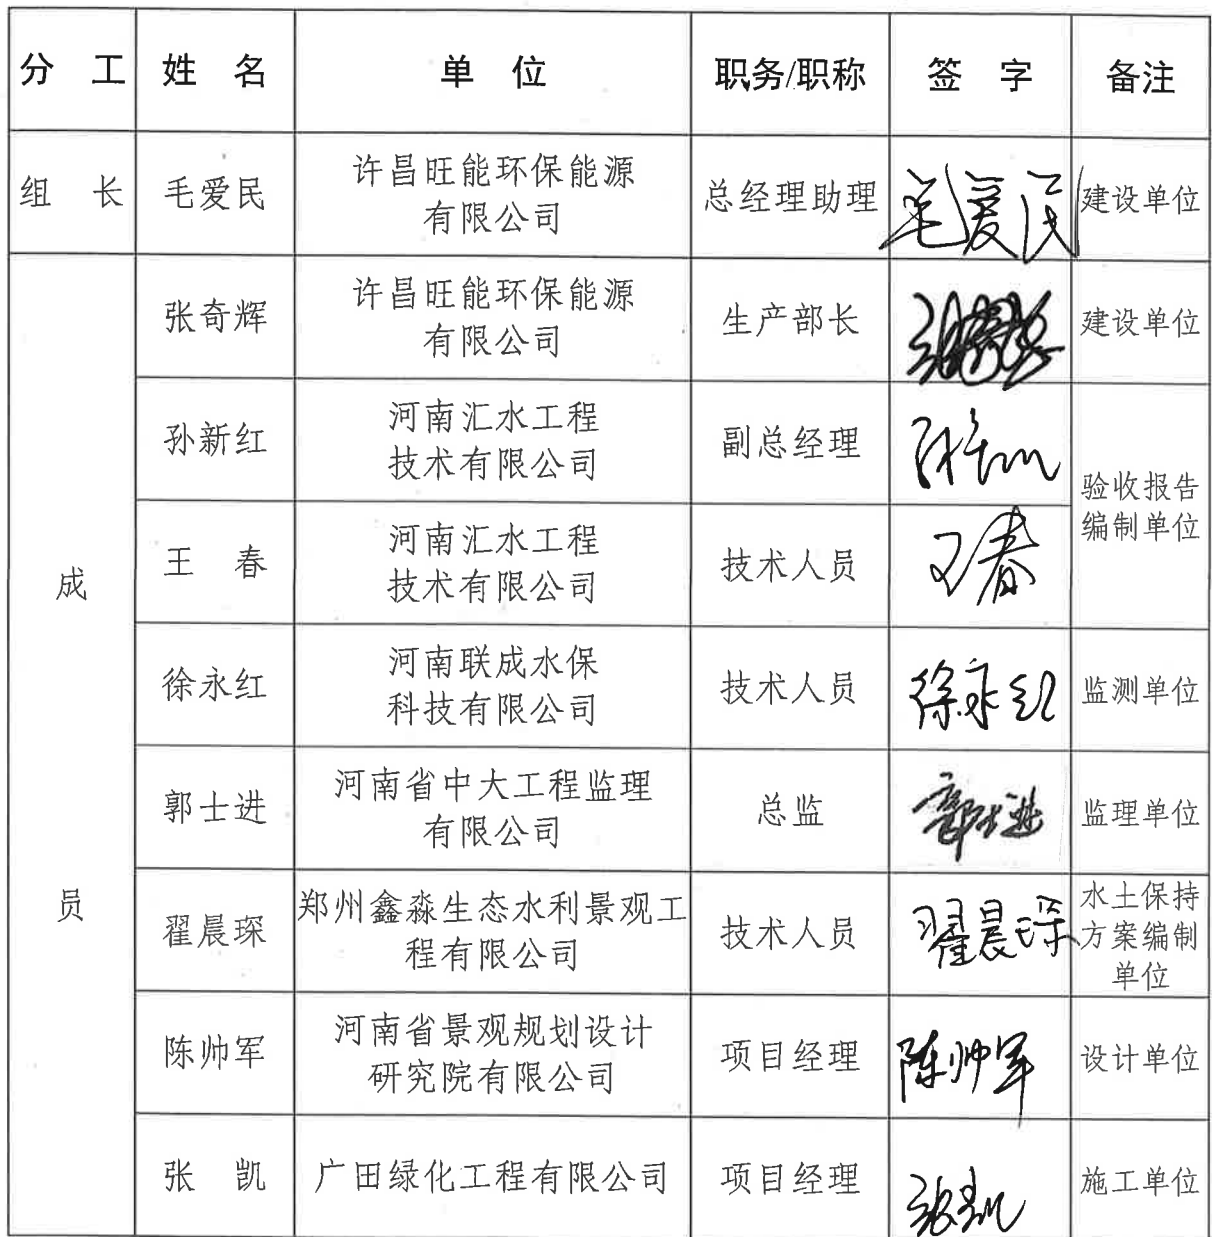 分 工 姓 名 单 位 职务/职称 签 字 备注
组 长 毛爱民 许昌旺能环保能源
有限公司 总经理助理 毛爱民 建设单位
成
员
张奇辉 许昌旺能环保能源
有限公司 生产部长 建设单位
孙新红 河南汇水工程
技术有限公司 副总经理
验收报告
编制单位
王 春 河南汇水工程
技术有限公司 技术人员 王春
徐永红 河南联成水保
科技有限公司 技术人员 徐永红 监测单位
郭士进 河南省中大工程监理
有限公司 总监 郭士进 监理单位
翟晨琛 郑州鑫淼生态水利景观工
程有限公司 技术人员 翟晨琛 水土保持
方案编制
单位
陈帅军 河南省景观规划设计
研究院有限公司 项目经理 陈帅军 设计单位
张 凯 广田绿化工程有限公司 项目经理 张凯 施工单位